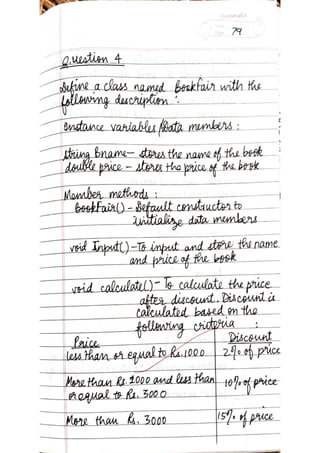 classmate
79
Question 4
Define a class named BookFair with the
following description :
Instance variables/Data members :
String Bname- stores the name of the book
double price - stores the price of the book
Member methods :
BookFair() - Default constructor to
initialize data members
void Input() - To input and store the name
and price of the book
void calculate() - To calculate the price
after discount. Discount is
calculated based on the
following criteria :
Price Discount
less than or equal to Rs.1000 2% of price
More than Rs. 1000 and less than 10% of price
or equal to Rs. 3000
More than Rs. 3000 15% of price